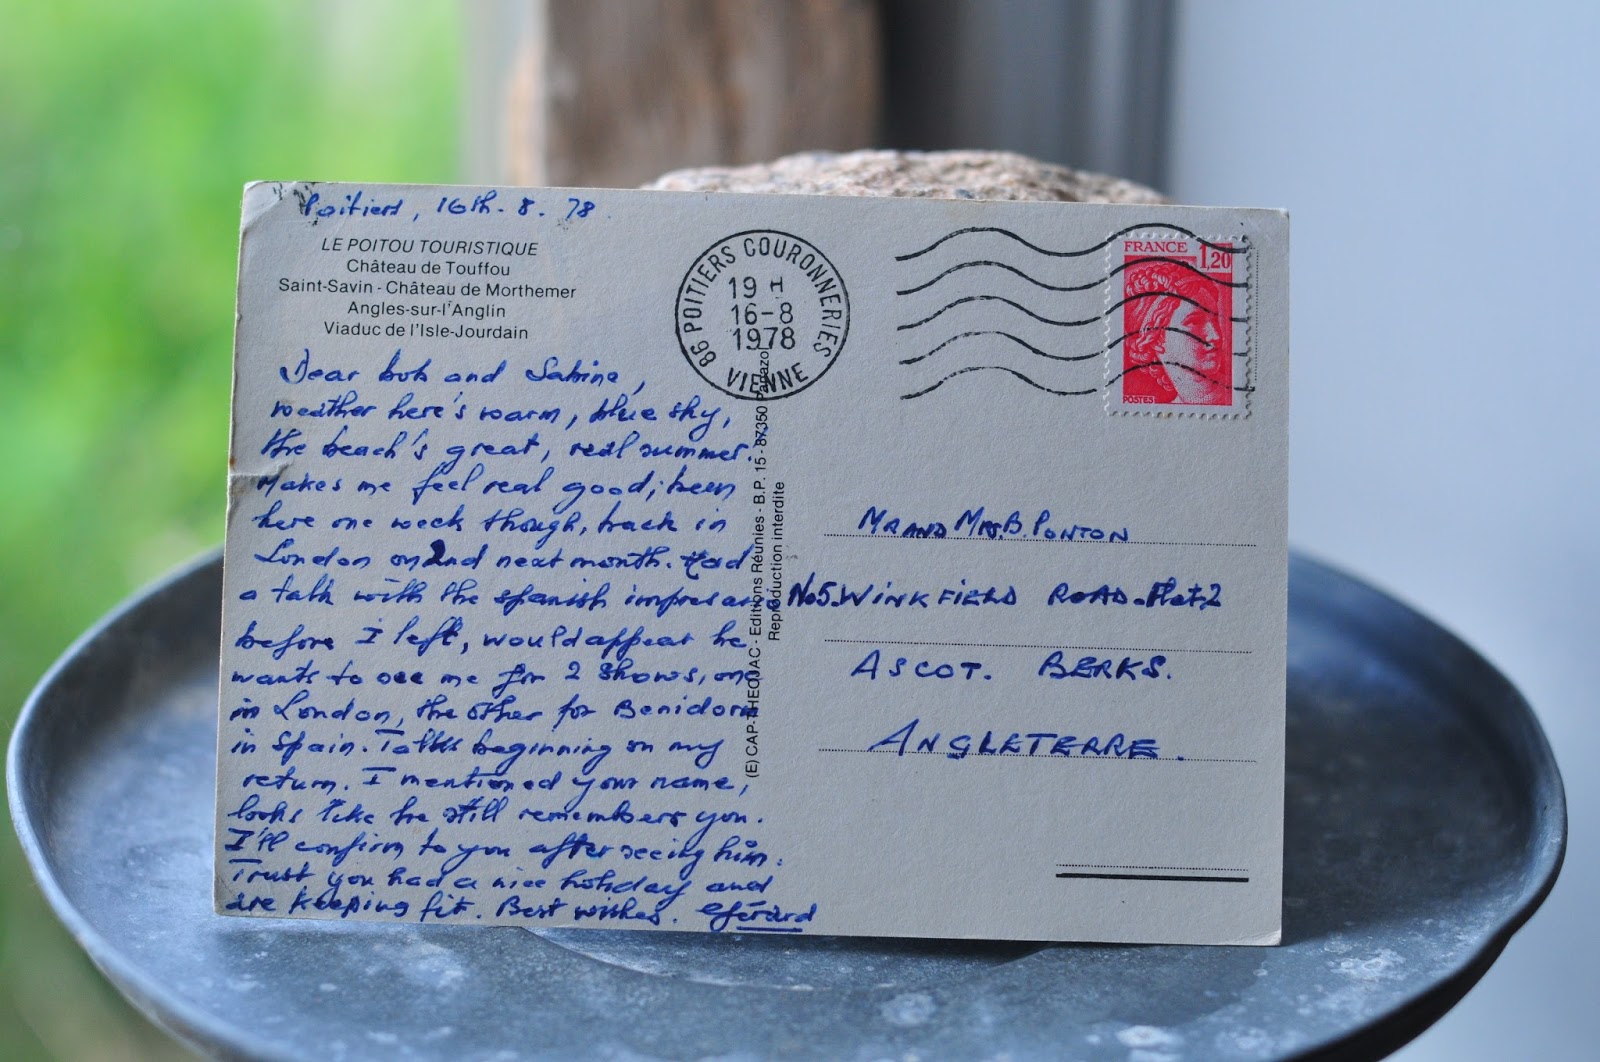 Poitiers, 16th. 8. 78
LE POITOU TOURISTIQUE
Château de Touffou
Saint-Savin - Château de Morthemer
Angles-sur-l'Anglin
Viaduc de l'Isle-Jourdain
Dear bob and Sabine,
weather here's warm, blue sky,
the beach's great, real summer.
Makes me feel real good; been
here one week though, back in
London on 2nd next month. Had
a talk with the spanish impresario
before I left, would appear he
wants to see me for 2 shows, one
in London, the other for Benidorm
in Spain. Talks beginning on my
return. I mentioned your name,
looks like he still remembers you.
I'll confirm to you after seeing him.
Trust you had a nice holiday and
are keeping fit. Best wishes. Gérard
(E) CAP-THEOJAC - Editions Réunies - B.P. 15 - 87350 Panazol
Reproduction interdite
86 POITIERS COURONNERIES
19 H
16-8
1978
VIENNE
FRANCE 1,20
POSTES
MR AND MRS. B. PONTON
No5. WINKFIELD ROAD. Flat 2
ASCOT. BERKS.
ANGLETERRE.